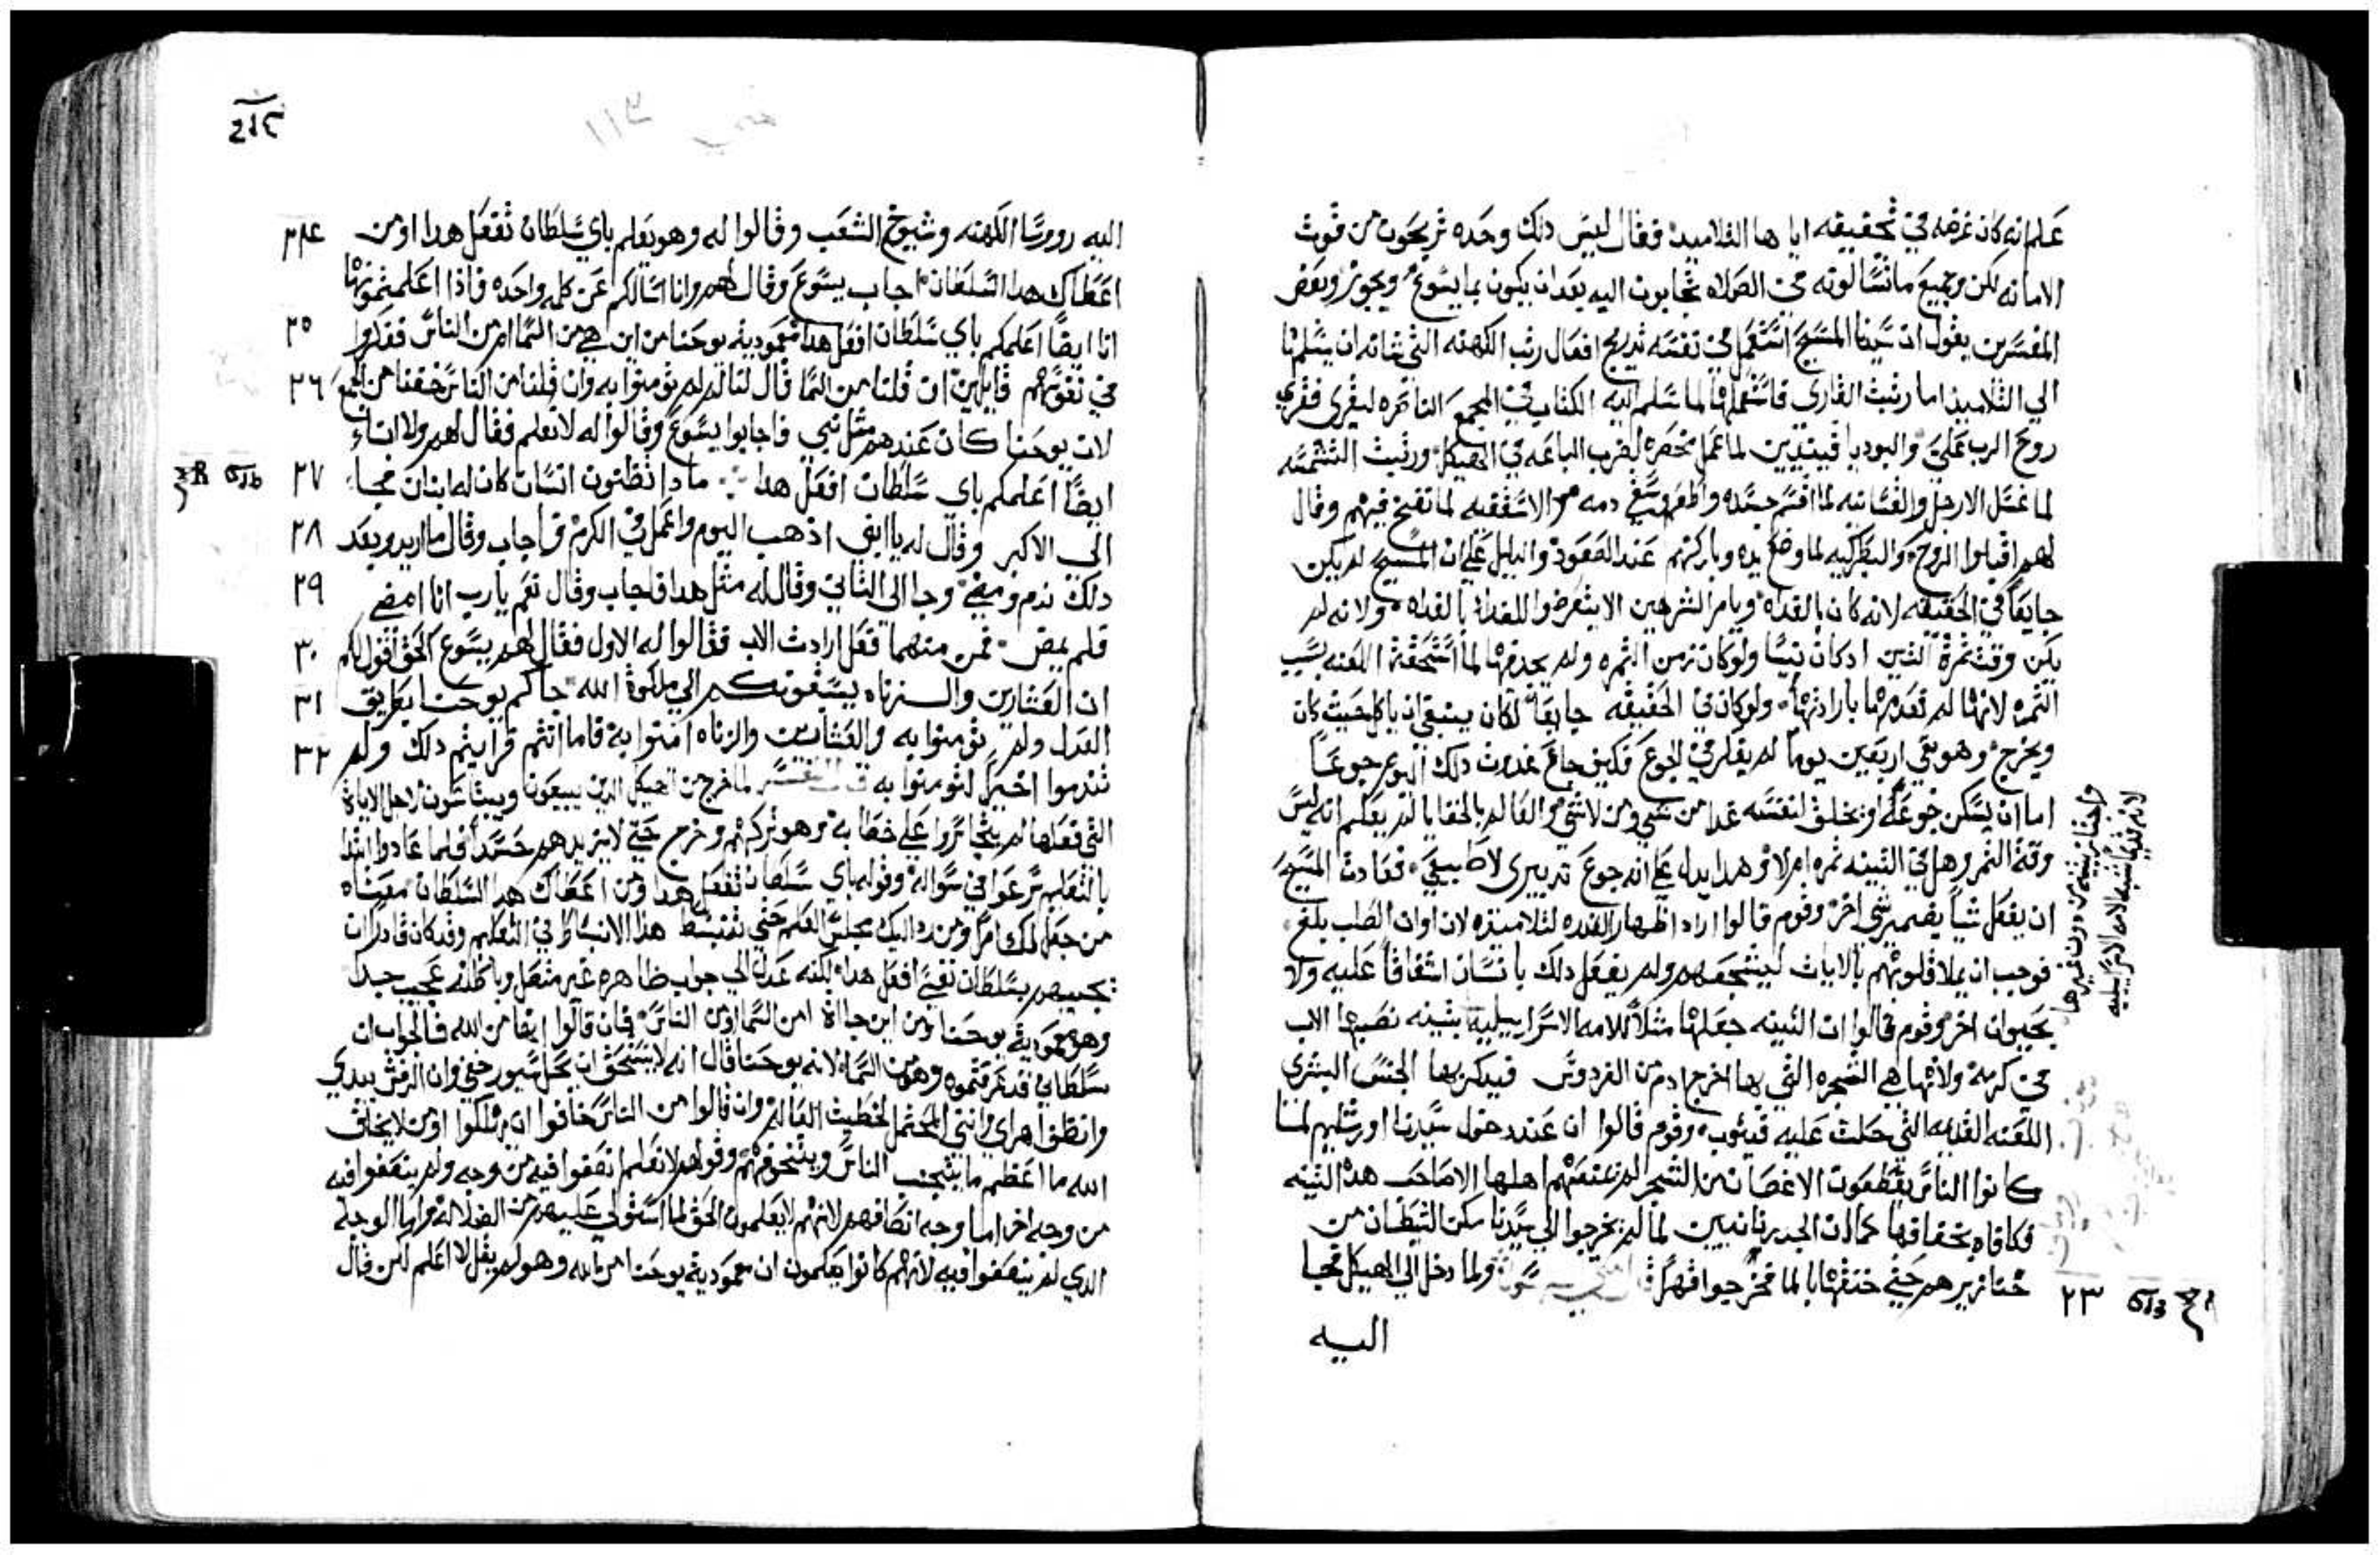 علم انه كان غرضه في تحقيقه اياها التلاميد فقال ليس دلك وحده تربحون من قوت
الامانه لكن وجميع ما تسالونه في الصلاه تجابون اليه بعد ان يكون بما يسوغ ويجوز وبعض
المفسرين يقول ان سيدنا المسيح استعمل في نفسه تدريج افعال رتب الكهنه التي شانه ان يسلمها
الي التلاميذ اما رتبت القاري فاستعملها لما سلم اليه الكتاب في المجمع الناصره ليقري فقري
روح الرب علي والبوديا فيبتديين لما عمل مخصره لضرب الباعه في الهيكل ورتبت الشمسه
لما غسل الارجل والقسانيه لما اقسم جسده واطعم وسقي دمه الاسقفيه لما نفخ فيهم وقال
لهم اقبلوا الروح والبطركيه لما وضع يده وباركهم عند الصعود والدليل علي ان المسيح لم يكن
جايعا في الحقيقه لانه كان بالغداه ويامر الشرهين الا يتعرضوا للغدا بالغداه ولانه لم
يكن وقت ثمرة التين اد كان نيسا ولو كان زمن الثمره ولم يجد فيها لما استحقت اللعنه بسبب
الثمره لانها لم تعدمها بارادتها ولو كان في الحقيقه جايعا لكان ينبغي ان ياكل حيث كان
ويخرج وهو بقي اربعين يوما لم يفكر في الجوع فكيف جاع غدوت دلك اليوم جوعا
اما ان يسكن جوعه او يخلق لنفسه غدا من شي ومن لا شي والعالم بالخفايا لم يعلم انه ليس
وقت الثمر وهل في التينه ثمره ام لا وهدا يدل علي انه جوع تدبيري لا طبيعي فعادت المسيح
ان يفعل شيا يضمير شي اخر وقوم قالوا اراد اظهار القدره لتلاميذه لان اوان الصلب بلغ
فوجب ان يملا قلوبهم بالايات ليتشجعهم ولم يفعل دلك بانسان اشفاقا عليه ولا
بحيوان اخر وقوم قالوا ان التينه جعلها مثلا للامه الاسراييليه بتينه نصبها الاب
في كرمه ولانها هي الشجره التي بها اخرج ادم من الفردوس فيدكر بها الجنس البشري
اللعنه القديمه التي حلت عليه فيتوب وقوم قالوا ان عند دخول سيدنا اورشليم لما
كانوا الناس يقطعون الاغصان من الشجر لم يمنعهم اهلها الا صاحب هذا التينه
فكافاه بجفافها كمادت الجدرنانيين لما لم يخرجوا الي سيدنا مكن الشيطان من
خنازيرهم حتي خنقها بالما فخرجوا قهرا ولما دخل الي الهيكل فجا
٢٣
اليه
واختار تينه من دون غيرها
لانه قديما شبه الامه الاسراييليه
اليه روسا الكهنه وشيوخ الشعب وقالوا له وهو يعلم باي سلطان تفعل هدا او من
اعطاك هدا السلطان اجاب يسوع وقال لهم وانا اسالكم عن كلمه واحده فاذا اعلمتموني بها
٢٤
انا ايضا اعلمكم باي سلطان افعل هدا معمودية يوحنا من اين هي من السما ام من الناس ففكروا
٢٥
في نفوسهم قايلين ان قلنا من السما قال لنا لم لم تومنوا به وان قلنا من الناس خفنا من الجمع
٢٦
لان يوحنا كان عندهم مثل نبي فاجابوا يسوع وقالوا له لا نعلم فقال لهم ولا انا
ايضا اعلمكم باي سلطان افعل هدا ما دا تظنون انسان كان له ابنان فجا
٢٧
الي الاكبر وقال له يا ابني اذهب اليوم واعمل في الكرم فاجاب وقال ما اريد وبعد
٢٨
دلك ندم ومضي وجا الي الثاني وقال له مثل هدا فاجاب وقال نعم يا رب انا امضي
٢٩
فلم يمض فمن منهما فعل ارادت الاب فقالوا له الاول فقال لهم يسوع الحق اقول لكم
٣٠
ان العشارين والزناه يسبقونكم الي ملكوة الله جاكم يوحنا بطريق
٣١
العدل ولم تومنوا به والعشارين والزناه امنوا به فاما انتم فرايتم دلك ولم
٣٢
تندموا اخيرا لتومنوا به لما خرج من الهيكل الدين يبيعون ويبتاعون لاجل الاياة
التي فعلها لم يتجاسروا علي خطابه وهو تركهم وخرج حتي لا يزيدهم حسدا فلما عادوا ابتدا
بالتعليم شرعوا في سواله وقوله باي سلطان تفعل هدا ومن اعطاك هدا السلطان معناه
من جعل لك امرا ومن رد اليك مجلس العلم حتي تنبسط هذا الانبساط في التعليم وقد كان قادرا ان
يجيبهم بسلطان نفسي افعل هدا لكنه عدل الي جواب ظاهره غير متصل وباطنه عجيب جدا
وهو معمودية يوحنا من اين جااة امن السما او من الناس فان قالوا انها من الله فالجواب ان
سلطاني قد عرفتموه وهو من السما لانه يوحنا قال انه لا يستحق ان يحل سيور خفي وان الرفش بيدي
وانظف اهراي وانني المحتمل لخطيت العالم وان قالوا من الناس خافوا ان يهلكوا او من لا يخاف
الله ما اعظم ما يتجنب الناس ويتخوفهم وقولهم لا نعلم انصفوا فيه من وجه ولم ينصفوا فيه
من وجه اخر اما وجه انصافهم لانهم لا يعلمون الحق لما استولي عليهم من الضلاله واما الوجه
الدي لم ينصفوا فيه لانهم كانوا يعلمون ان معمودية يوحنا من الله وهو لم يقل لا اعلم لكن قال